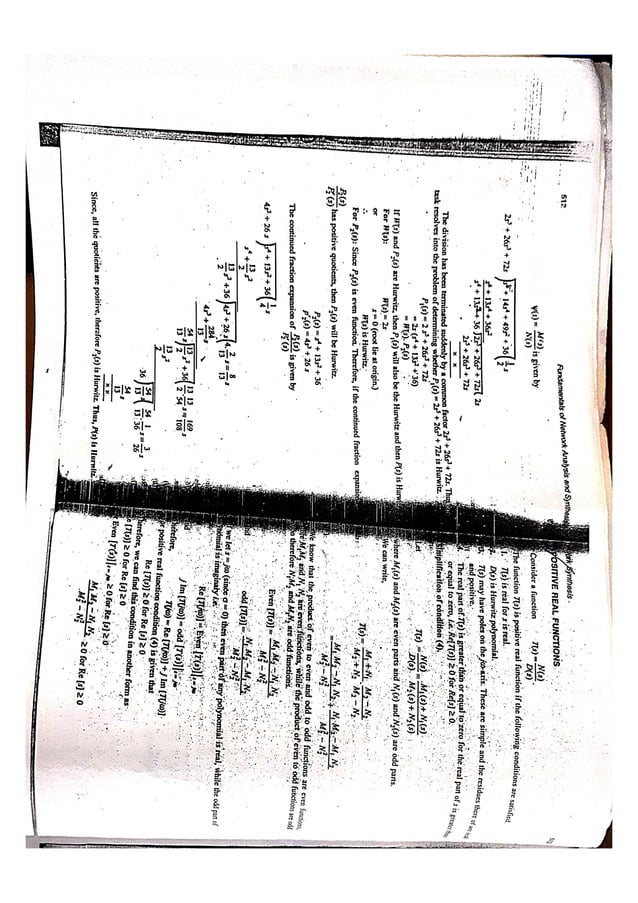 512
Fundamentals of Network Analysis and Synthesis
W(s) = M'(s)/N(s) is given by
2s³ + 26s³ + 72s ) s⁴ + 14s⁴ + 49s² + 36 ( 1/2 s
s⁶ + 13s⁴ + 36s²
s⁴ + 13s² + 36 ) 2s⁵ + 26s³ + 72s ( 2s
2s⁵ + 26s³ + 72s
× ×
The division has been terminated suddenly by a common factor 2s⁵ + 26s³ + 72s. Thus
task resolves into the problem of determining whether P₁(s) = 2s⁵ + 26s³ + 72s is Hurwitz.
P₁(s) = 2s⁵ + 26s³ + 72s
= 2s (s⁴ + 13s² + 36)
= W(s). P₂(s)
If W(s) and P₂(s) are Hurwitz, then P₁(s) will also be the Hurwitz and then P(s) is
For W(s): W(s) = 2s
or s = 0 (root lie at origin.)
∴ W(s) is Hurwitz.
For P₂(s): Since P₂(s) is even function. Therefore, if the continued fraction expansion
P₂(s)/P₂'(s) has positive quotients, then P₂(s) will be Hurwitz.
P₂(s) = s⁴ + 13s² + 36
P'₂(s) = 4s³ + 26 s
The continued fraction expansion of P₂(s)/P₂'(s) is given by
4s³ + 26 s ) s⁴ + 13s² + 36 ( 1/4 s
s⁴ + 13/2 s²
13/2 s² + 36 ) 4s³ + 26 s ( 4 · 2/13 s = 8/13 s
4s³ + 288/13 s
54/13 s ) 13/2 s² + 36 ( 13/2 · 13/54 s = 169/108 s
13/2 s²
36 ) 54/13 s ( 54/13 · 1/36 s = 3/26 s
54/13 s
× ×
Since, all the quotients are positive, therefore P₂(s) is Hurwitz. Thus, P(s) is Hurwitz.
Synthesis
POSITIVE REAL FUNCTIONS
Consider a function T(s) = N(s)/D(s)
The function T(s) is positive real function if the following conditions are satisfied.
1. T(s) is real for s is real.
D(s) is Hurwitz polynomial.
T(s) may have poles on the jω-axis. These are simple and the residues there of
and positive.
The real part of T(s) is greater than or equal to zero for the real part of s is greater
or equal to zero, i.e. Re[T(s)] ≥ 0 for Re[s] ≥ 0.
Simplification of condition (4).
Let T(s) = N(s)/D(s) = M₁(s) + N₁(s)/M₂(s) + N₂(s)
where M₁(s) and M₂(s) are even parts and N₁(s) and N₂(s) are odd parts.
We can write,
T(s) = M₁ + N₁/M₂ + N₂ · M₂ − N₂/M₂ − N₂
= M₁M₂ − N₁N₂/M₂² − N₂² + N₁M₂ − M₁N₂/M₂² − N₂²
We know that the product of even to even and odd to odd functions are even functions,
M₁M₂ and N₁N₂ are even functions, while the product of even to odd function are odd
therefore N₁M₂ and M₁N₂ are odd functions.
Even [T(s)] = M₁M₂ − N₁N₂/M₂² − N₂²
odd [T(s)] = N₁M₂ − M₁N₂/M₂² − N₂²
we let s = jω (since σ = 0) then even part of any polynomial is real, while the odd part of
polynomial is imaginary i.e.
Re [T(jω)] = Even [T(s)]|s = jω
j Im [T(jω)] = odd [T(s)]|s = jω
Therefore,
T(jω) = Re [T(jω)] + j Im [T(jω)]
positive real function condition (4) is given that
Re [T(s)] ≥ 0 for Re [s] ≥ 0
Therefore, we can find this condition in another form as
[T(s)] ≥ 0 for Re [s] ≥ 0
Even [T(s)]|s = jω ≥ 0 for Re [s] ≥ 0
M₁M₂ − N₁N₂/M₂² − N₂² ≥ 0 for Re [s] ≥ 0